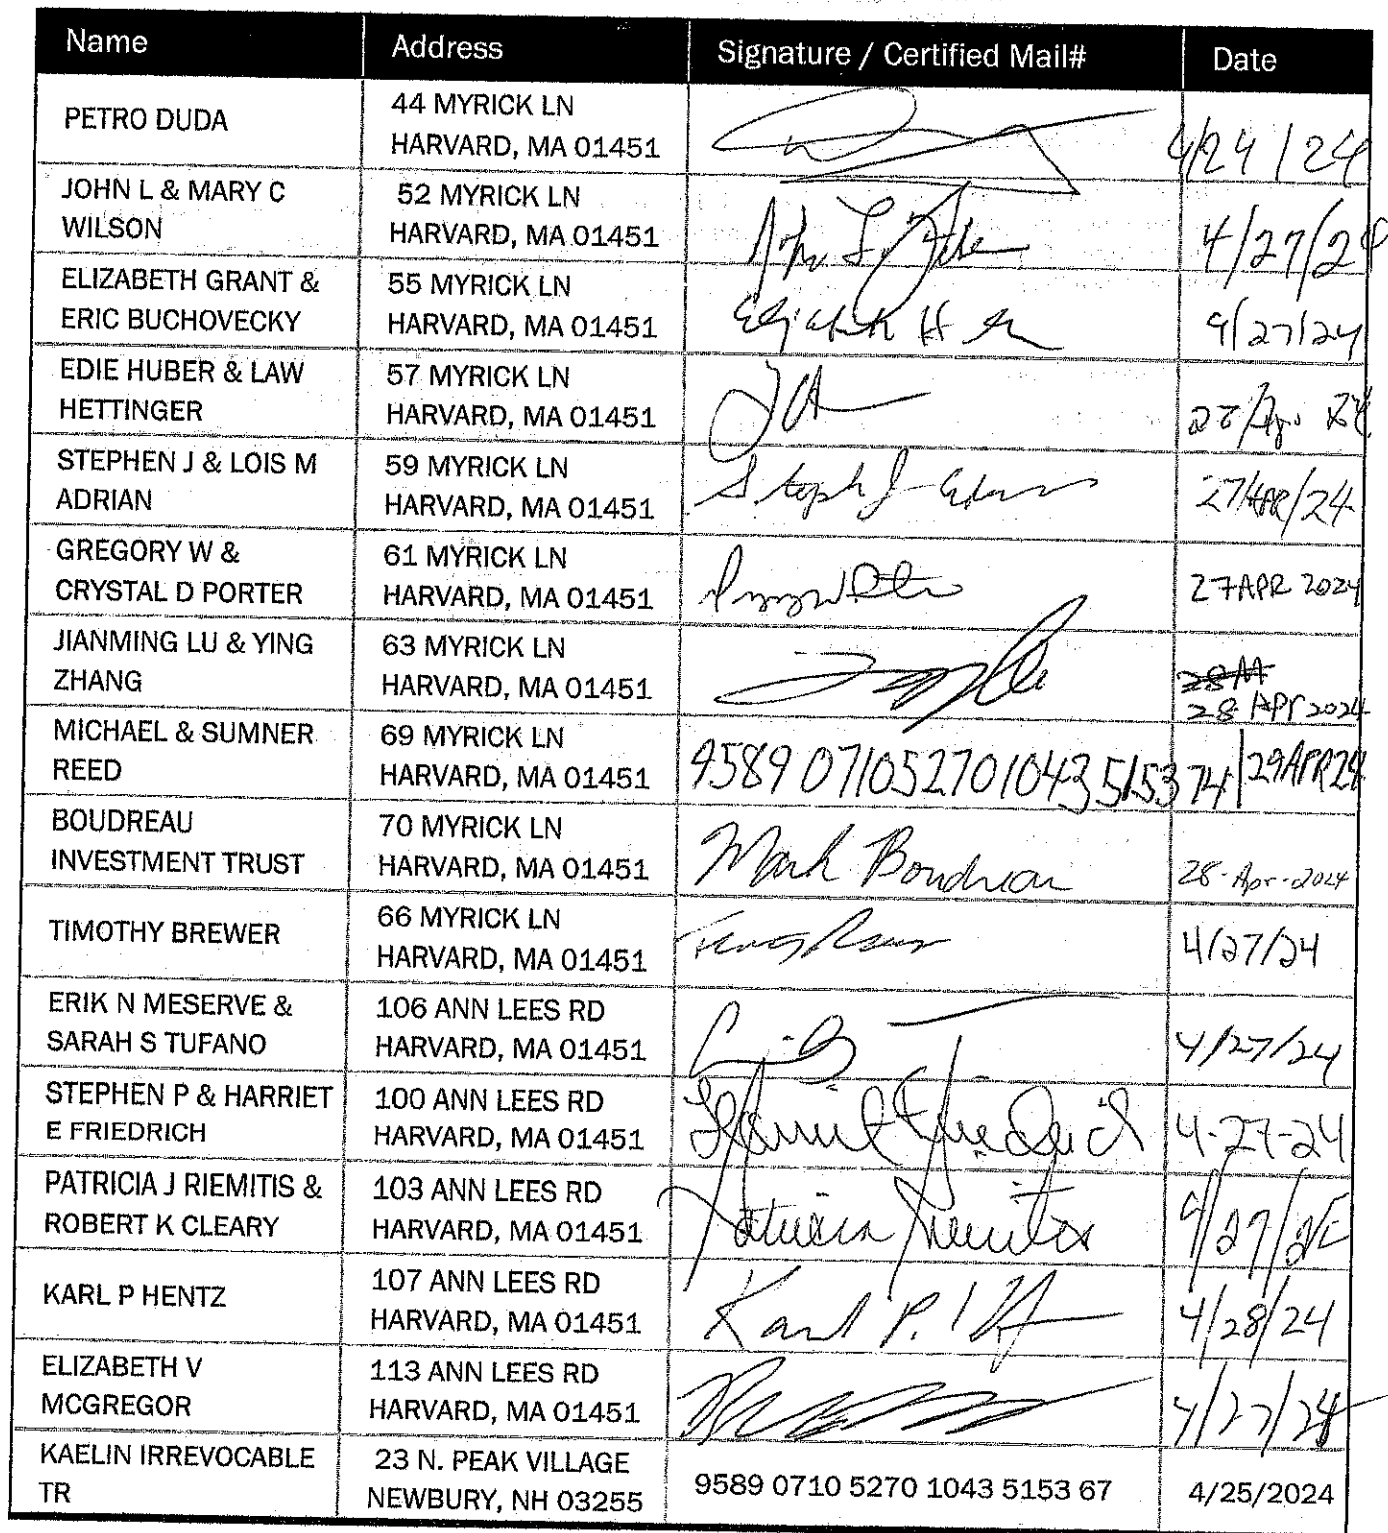 Name Address Signature / Certified Mail# Date
PETRO DUDA
44 MYRICK LN
HARVARD, MA 01451
JOHN L & MARY C
WILSON
52 MYRICK LN
HARVARD, MA 01451
John L.
4/27/24
ELIZABETH GRANT &
ERIC BUCHOVECKY
55 MYRICK LN
HARVARD, MA 01451
Elizabeth H
4/27/24
EDIE HUBER & LAW
HETTINGER
57 MYRICK LN
HARVARD, MA 01451
STEPHEN J & LOIS M
ADRIAN
59 MYRICK LN
HARVARD, MA 01451
Stephen J. Adrian
27/APR/24
GREGORY W &
CRYSTAL D PORTER
61 MYRICK LN
HARVARD, MA 01451
27 APR 2024
JIANMING LU & YING
ZHANG
63 MYRICK LN
HARVARD, MA 01451
28 APR 2024
MICHAEL & SUMNER
REED
69 MYRICK LN
HARVARD, MA 01451
9589 0710 5270 1043 5153 74
29APR24
BOUDREAU
INVESTMENT TRUST
70 MYRICK LN
HARVARD, MA 01451
Mark Boudreau
28-Apr-2024
TIMOTHY BREWER
66 MYRICK LN
HARVARD, MA 01451
4/27/24
ERIK N MESERVE &
SARAH S TUFANO
106 ANN LEES RD
HARVARD, MA 01451
4/27/24
STEPHEN P & HARRIET
E FRIEDRICH
100 ANN LEES RD
HARVARD, MA 01451
Harriet Friedrich
4-27-24
PATRICIA J RIEMITIS &
ROBERT K CLEARY
103 ANN LEES RD
HARVARD, MA 01451
Patricia Riemitis
4/27/24
KARL P HENTZ
107 ANN LEES RD
HARVARD, MA 01451
Karl P.
4/28/24
ELIZABETH V
MCGREGOR
113 ANN LEES RD
HARVARD, MA 01451
4/27/24
KAELIN IRREVOCABLE
TR
23 N. PEAK VILLAGE
NEWBURY, NH 03255
9589 0710 5270 1043 5153 67
4/25/2024